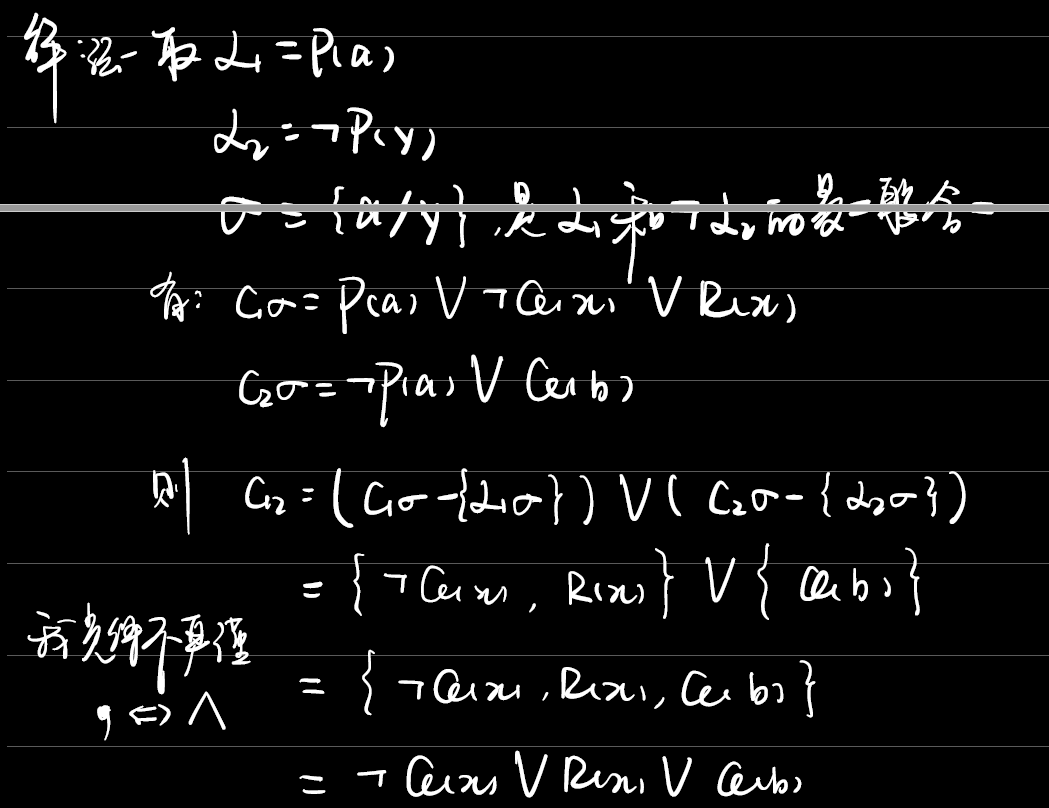 解法一 取 L₁ = P(a)
L₂ = ¬P(y)
σ = {a/y}, 是 L₁ 和 ¬L₂ 的最一般合一
有: C₁σ = P(a) ∨ ¬Q(x) ∨ R(x)
C₂σ = ¬P(a) ∨ Q(b)
则 C₁₂ = (C₁σ - {L₁σ}) ∨ (C₂σ - {L₂σ})
= {¬Q(x), R(x)} ∨ {Q(b)}
= {¬Q(x), R(x), Q(b)}
, ⇔ ∧
= ¬Q(x) ∨ R(x) ∨ Q(b)